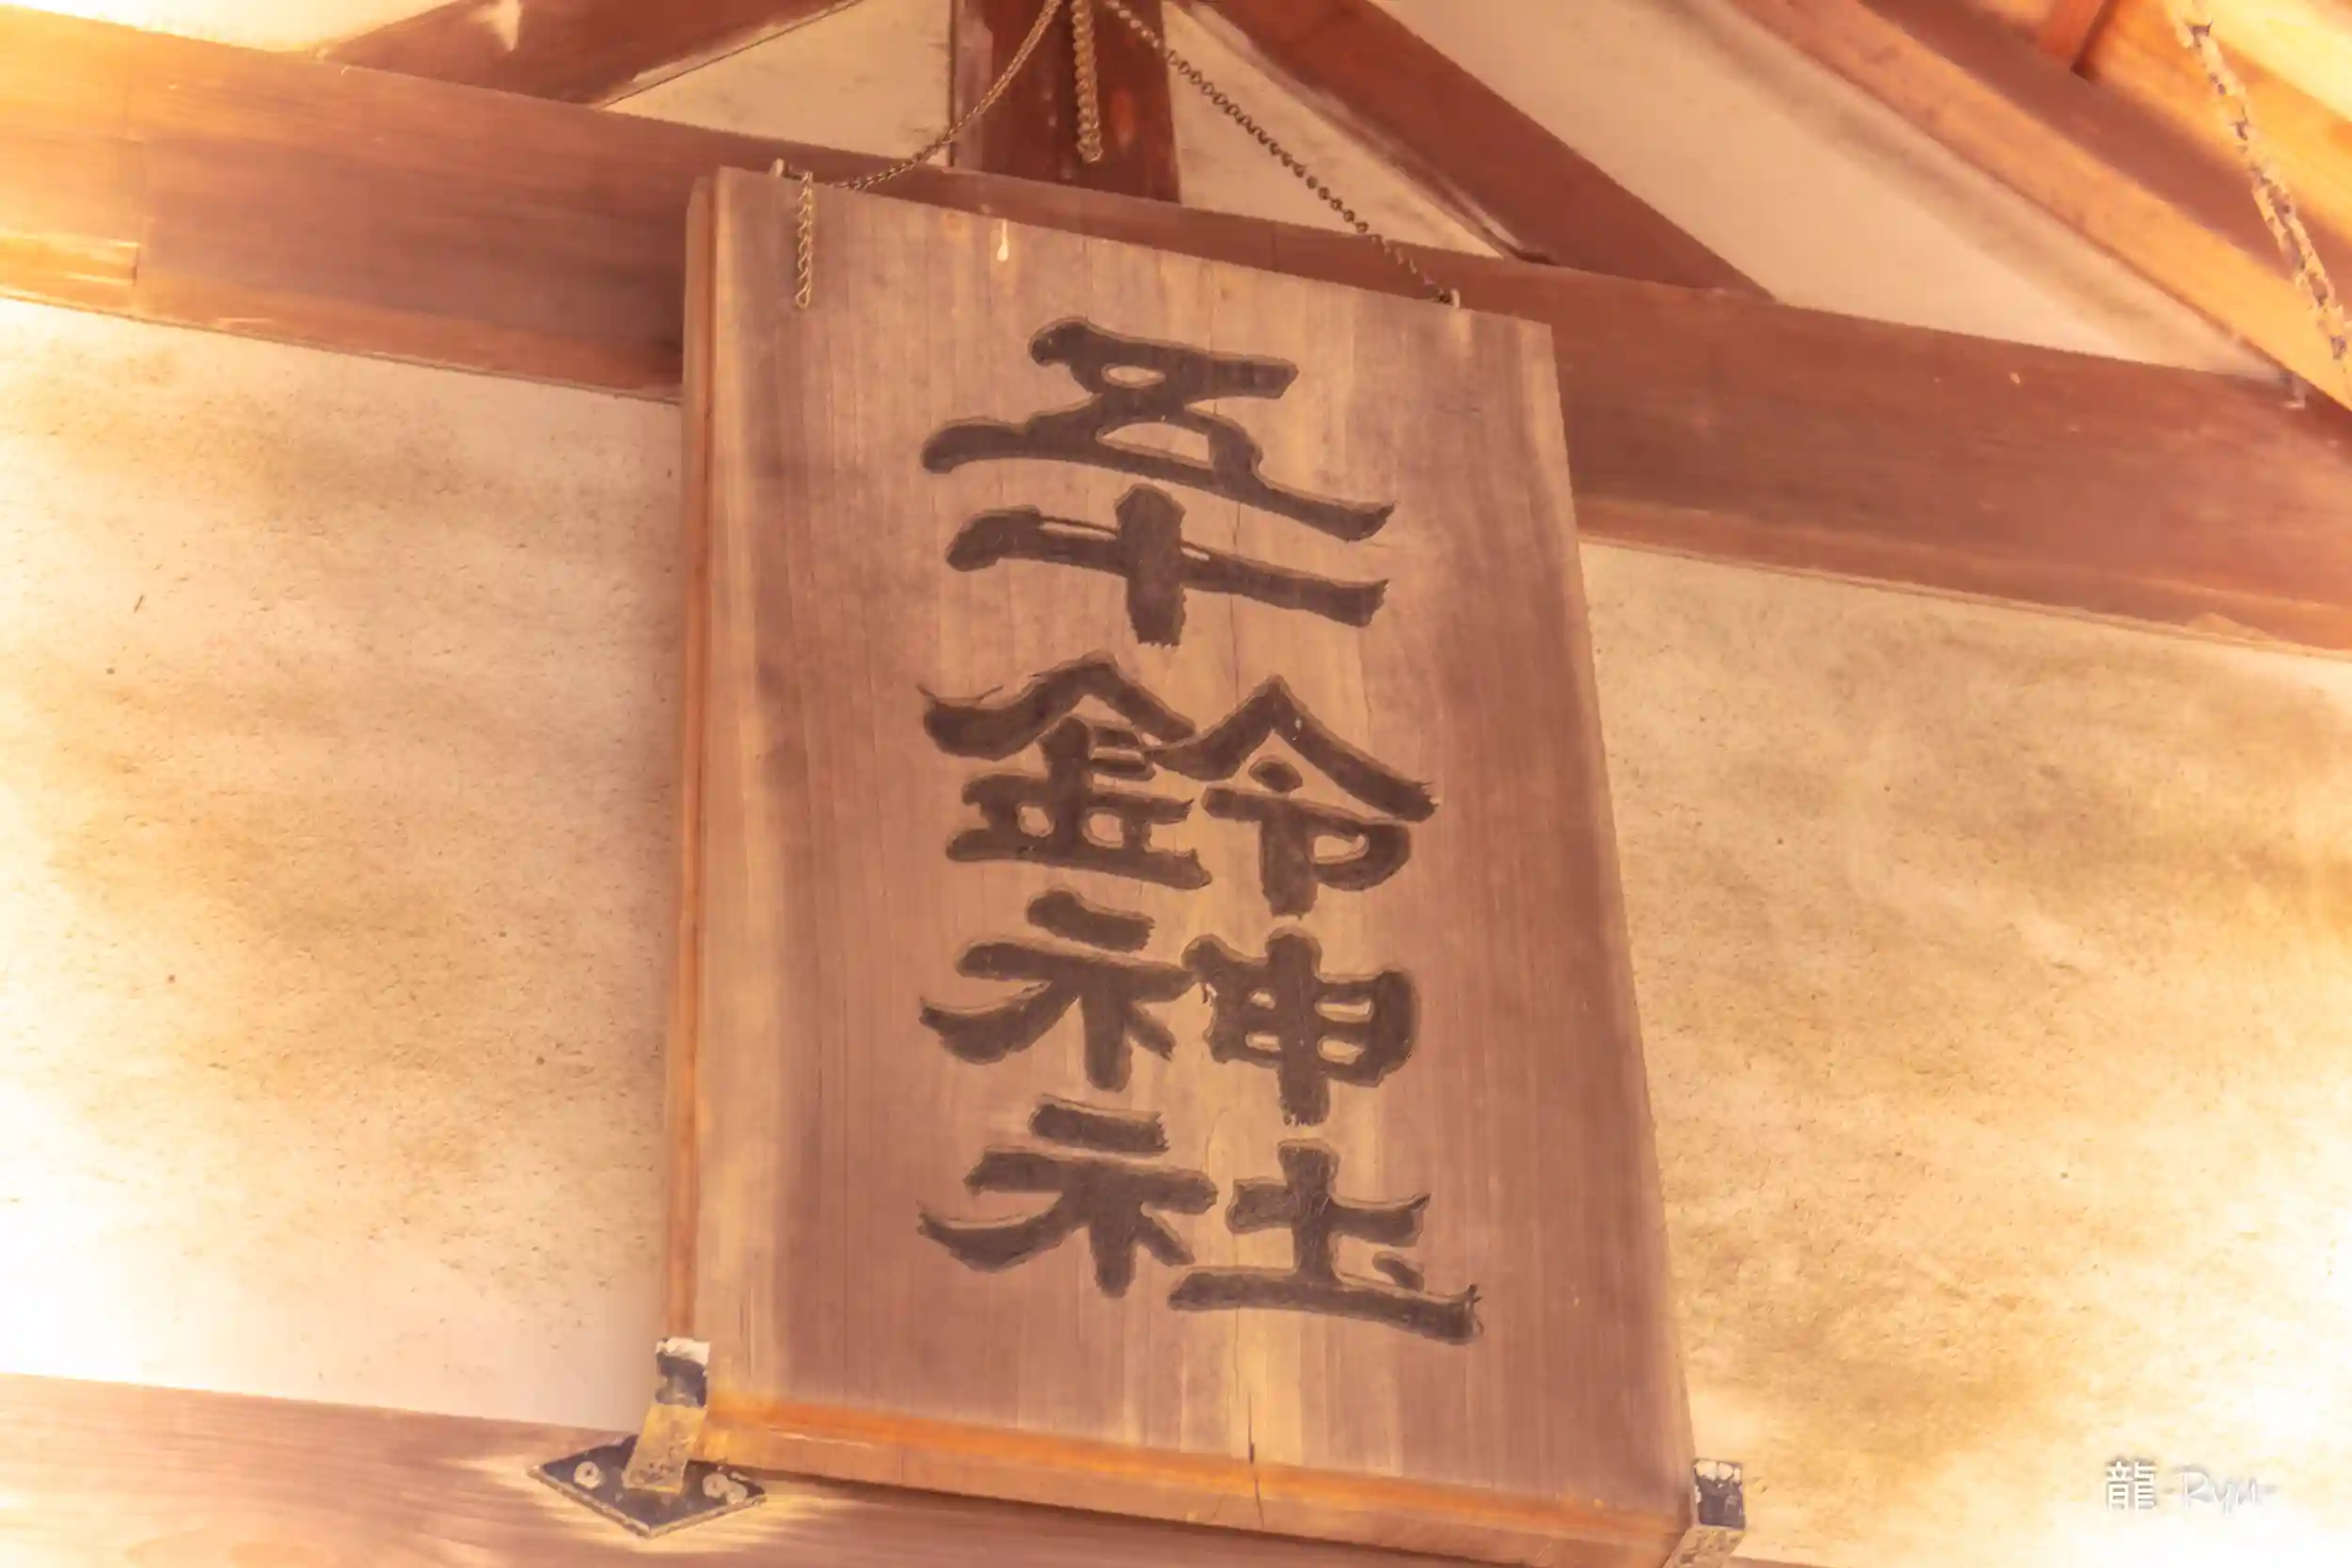 五十鈴神社
龍-Ryu-